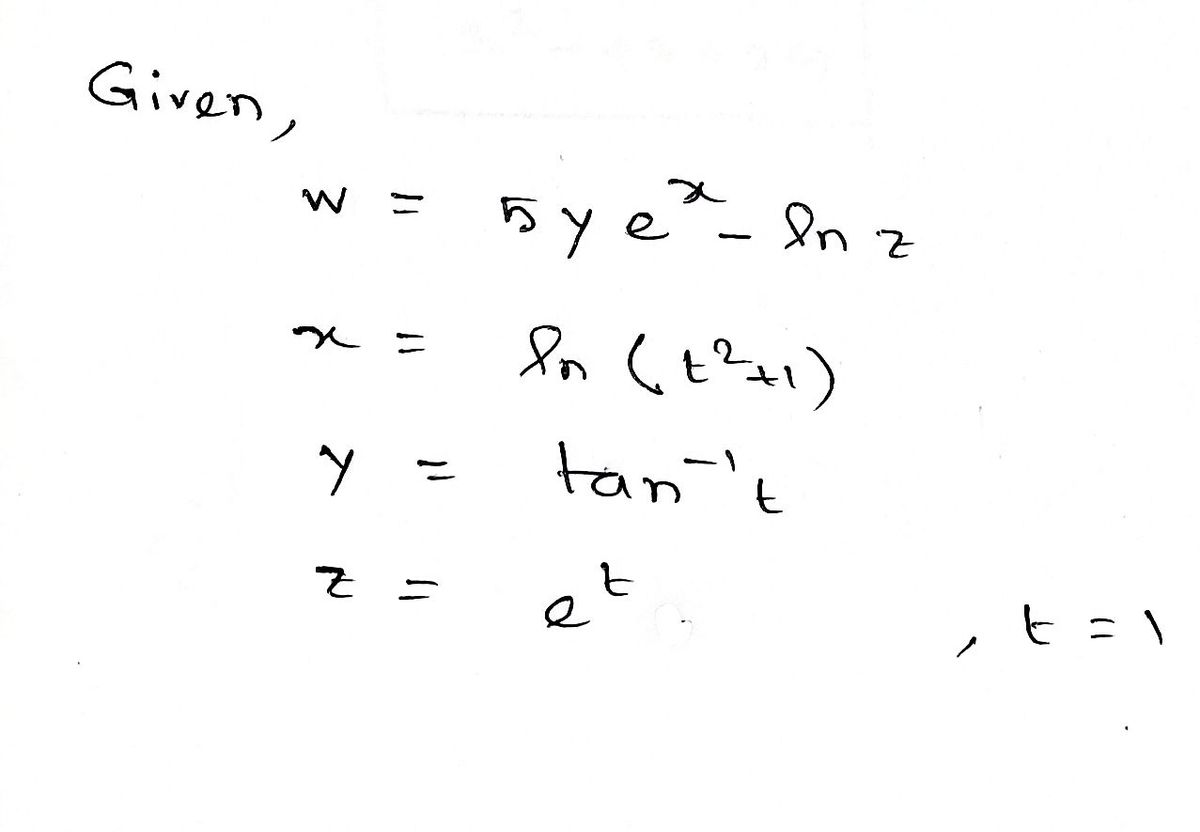 Given,
w = 5 y e^x - ln z
x = ln (t^2+1)
y = tan^-1 t
z = e^t , t = 1